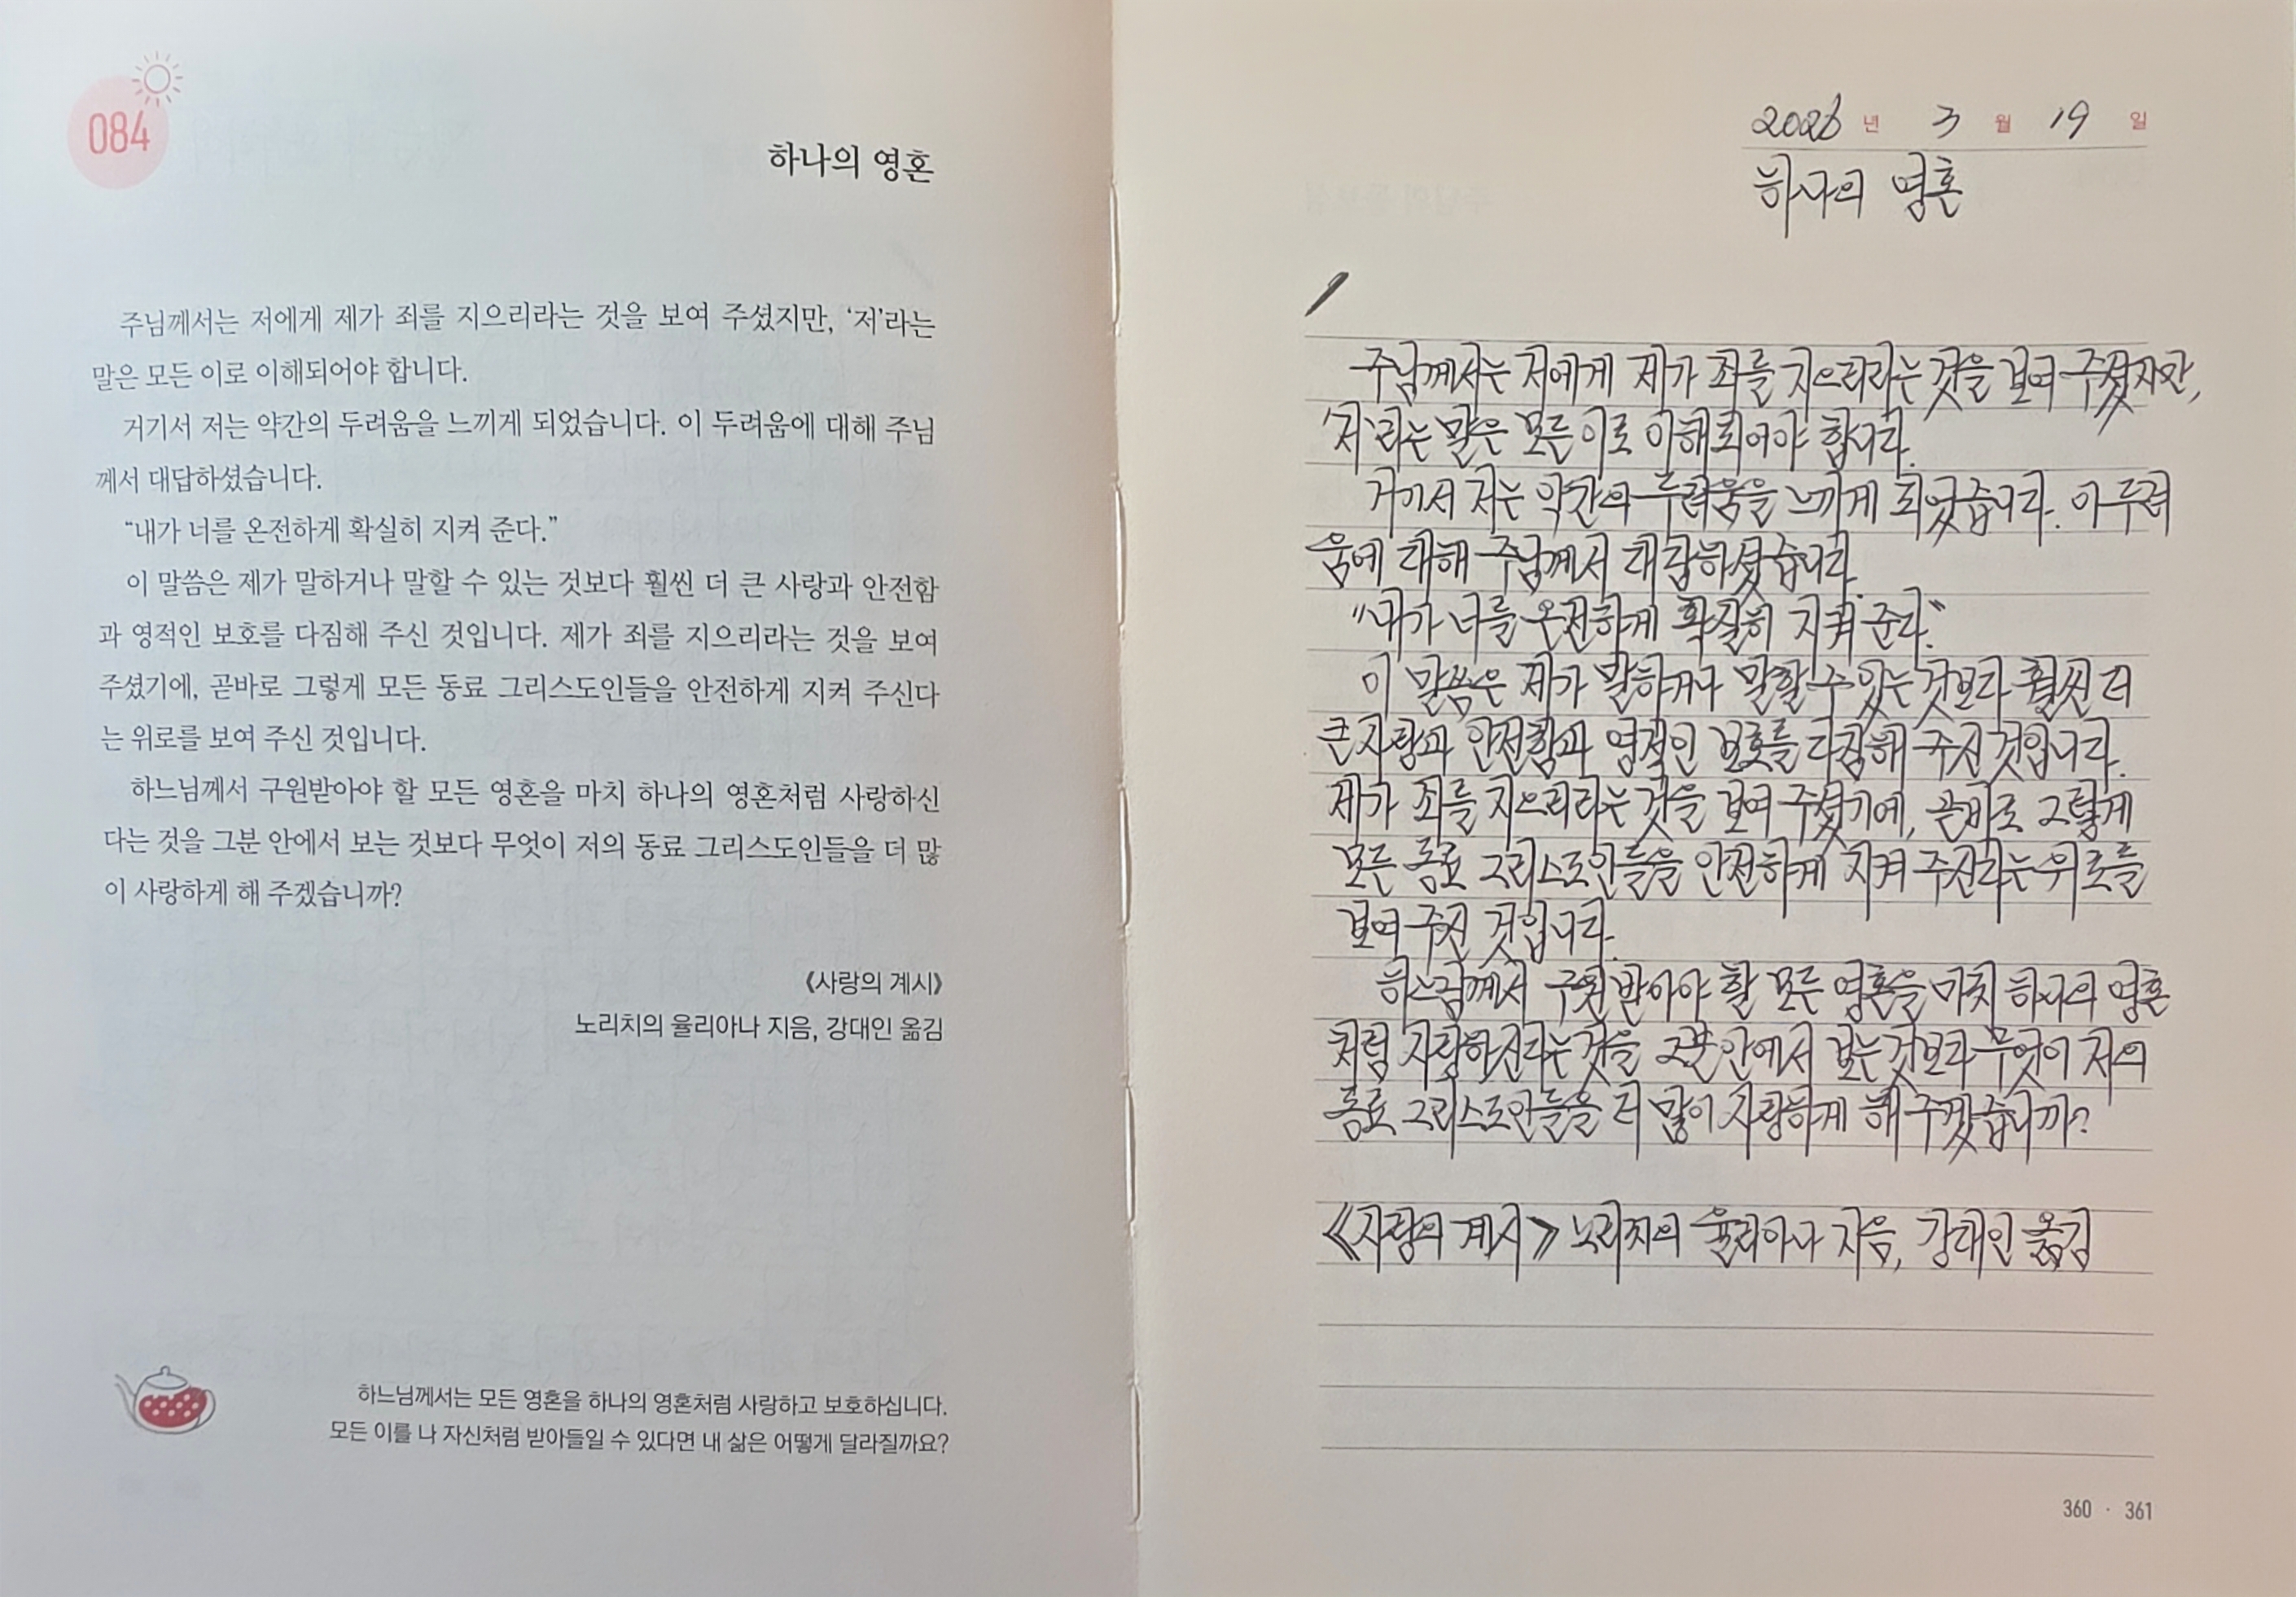 084
하나의 영혼
주님께서는 저에게 제가 죄를 지으리라는 것을 보여 주셨지만, ‘저’라는
말은 모든 이로 이해되어야 합니다.
거기서 저는 약간의 두려움을 느끼게 되었습니다. 이 두려움에 대해 주님
께서 대답하셨습니다.
“내가 너를 온전하게 확실히 지켜 준다.”
이 말씀은 제가 말하거나 말할 수 있는 것보다 훨씬 더 큰 사랑과 안전함
과 영적인 보호를 다짐해 주신 것입니다. 제가 죄를 지으리라는 것을 보여
주셨기에, 곧바로 그렇게 모든 동료 그리스도인들을 안전하게 지켜 주신다
는 위로를 보여 주신 것입니다.
하느님께서 구원받아야 할 모든 영혼을 마치 하나의 영혼처럼 사랑하신
다는 것을 그분 안에서 보는 것보다 무엇이 저의 동료 그리스도인들을 더 많
이 사랑하게 해 주겠습니까?
《사랑의 계시》
노리치의 율리아나 지음, 강대인 옮김
하느님께서는 모든 영혼을 하나의 영혼처럼 사랑하고 보호하십니다.
모든 이를 나 자신처럼 받아들일 수 있다면 내 삶은 어떻게 달라질까요?
2026 년 3 월 19 일
하나의 영혼
주님께서는 저에게 제가 죄를 지으리라는 것을 보여 주셨지만,
‘저’라는 말은 모든 이로 이해되어야 합니다.
거기서 저는 약간의 두려움을 느끼게 되었습니다. 이 두려
움에 대해 주님께서 대답하셨습니다.
“내가 너를 온전하게 확실히 지켜 준다.”
이 말씀은 제가 말하거나 말할 수 있는 것보다 훨씬 더
큰 사랑과 안전함과 영적인 보호를 다짐해 주신 것입니다.
제가 죄를 지으리라는 것을 보여 주셨기에, 곧바로 그렇게
모든 동료 그리스도인들을 안전하게 지켜 주신다는 위로를
보여 주신 것입니다.
하느님께서 구원받아야 할 모든 영혼을 마치 하나의 영혼
처럼 사랑하신다는 것을 그분 안에서 보는 것보다 무엇이 저의
동료 그리스도인들을 더 많이 사랑하게 해 주겠습니까?
《사랑의 계시》 노리치의 율리아나 지음, 강대인 옮김
360 · 361